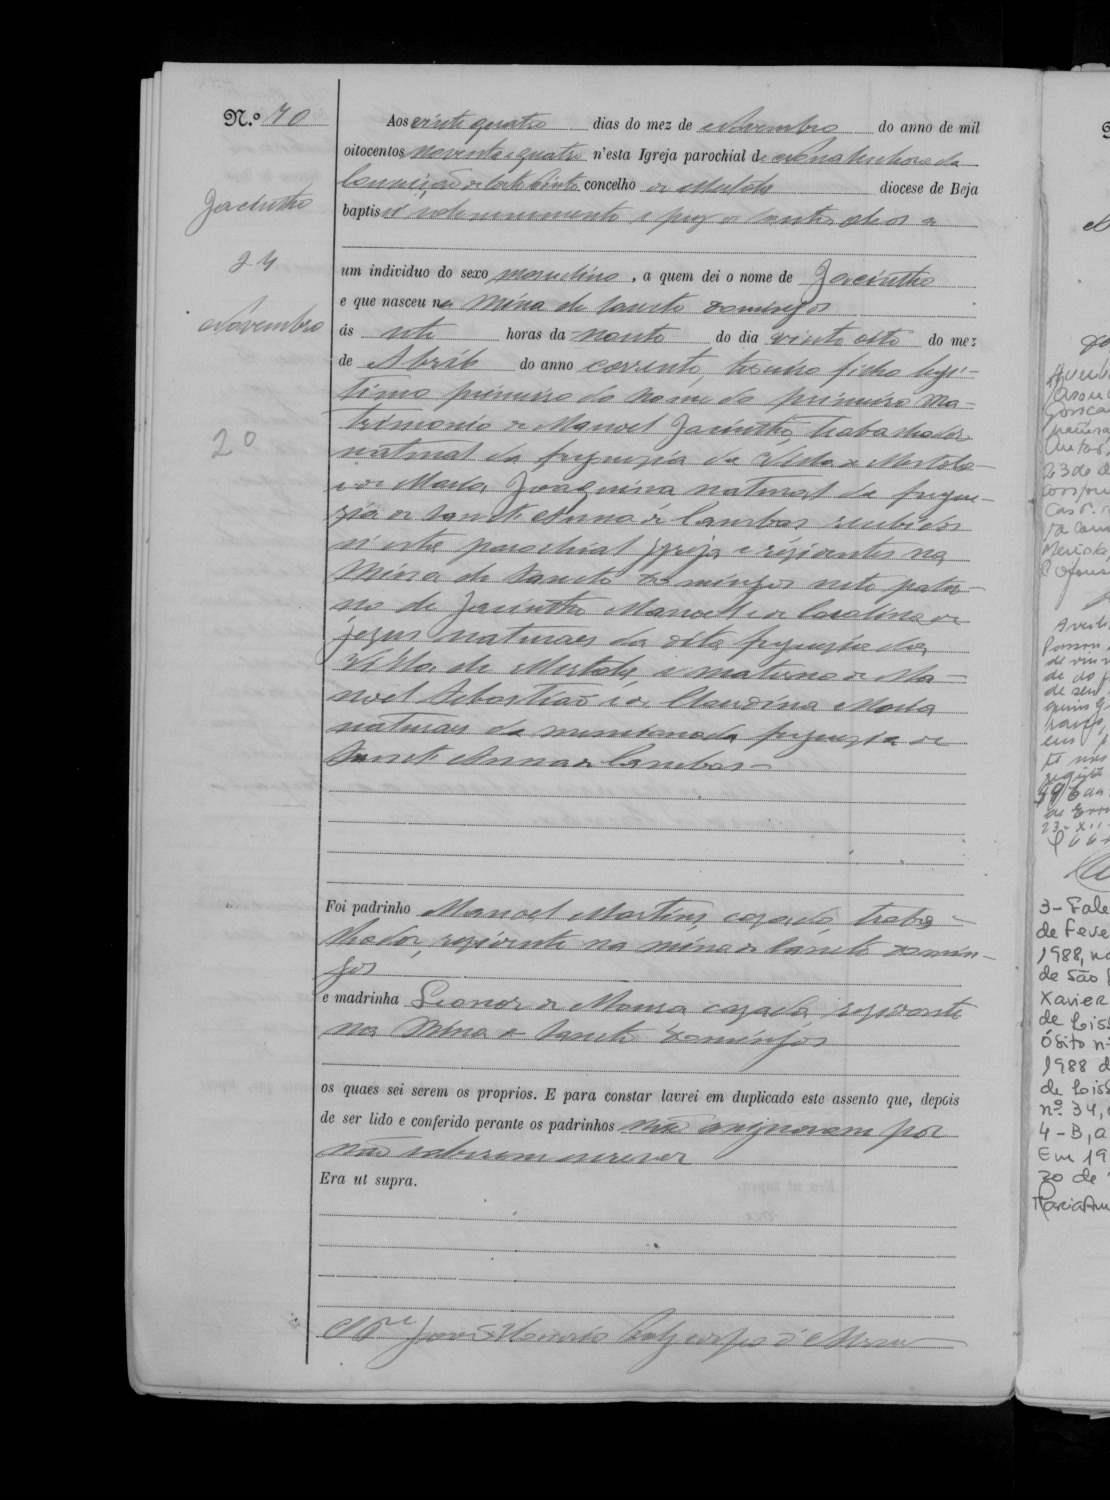 N.º 70
Aos vinte quatro dias do mez de Novembro do anno de mil
oitocentos noventa e quatro n'esta Igreja parochial de Nossa Senhora da
Conceição de Corte do Pinto concelho de Mertola diocese de Beja
baptisei solemnemente e puz os santos oleos a
Jacintho
24
Novembro
2º
um individuo do sexo masculino, a quem dei o nome de Jacintho
e que nasceu na Mina de Sancto Domingos
ás sete horas da noute do dia vinte oito do mez
de Abril do anno corrente, terceiro filho legi-
timo primeiro do nome do primeiro Ma-
trimonio de Manoel Jacintho, trabalhador
natural da freguezia da Villa de Mertola
e de Maria Joaquina natural da fregue-
zia de Sancta Anna de Cambas recebidos
n'esta parochial Igreja e rezidentes na
Mina de Sancto Domingos neto pater-
no de Jacintho Manoel e de Carolina de
Jezus naturaes da dita freguezia da
Villa de Mertola, e materno de Ma-
noel Sebastião e de Claudina Maria
naturaes da mencionada freguezia de
Sancta Anna de Cambas
Foi padrinho Manoel Martins, cazado, traba-
lhador, rezidente na mina de Sancto Domin-
gos
e madrinha Leonor de Moura cazada, rezidente
na Mina de Sancto Domingos
os quaes sei serem os proprios. E para constar lavrei em duplicado este assento que, depois
de ser lido e conferido perante os padrinhos não assignaram por
não saberem escrever
Era ut supra.
3- Fale
de Feve
1988, na
de São
Xavier
de Lis
Ósito nº
1988 d
de Lis
nº 34,
4-B, a
Em 19
20 de